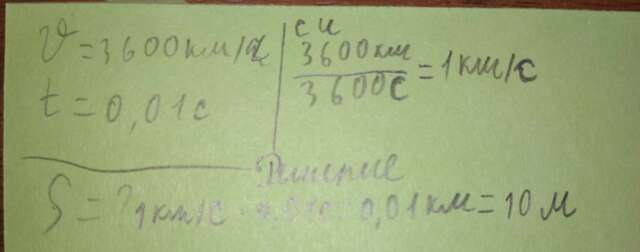 υ = 3600 км/ч
t = 0,01 с
СИ
3600 км
3600 с
= 1 км/с
Решение
S = ? 1 км/с · 0,01 км = 10 м